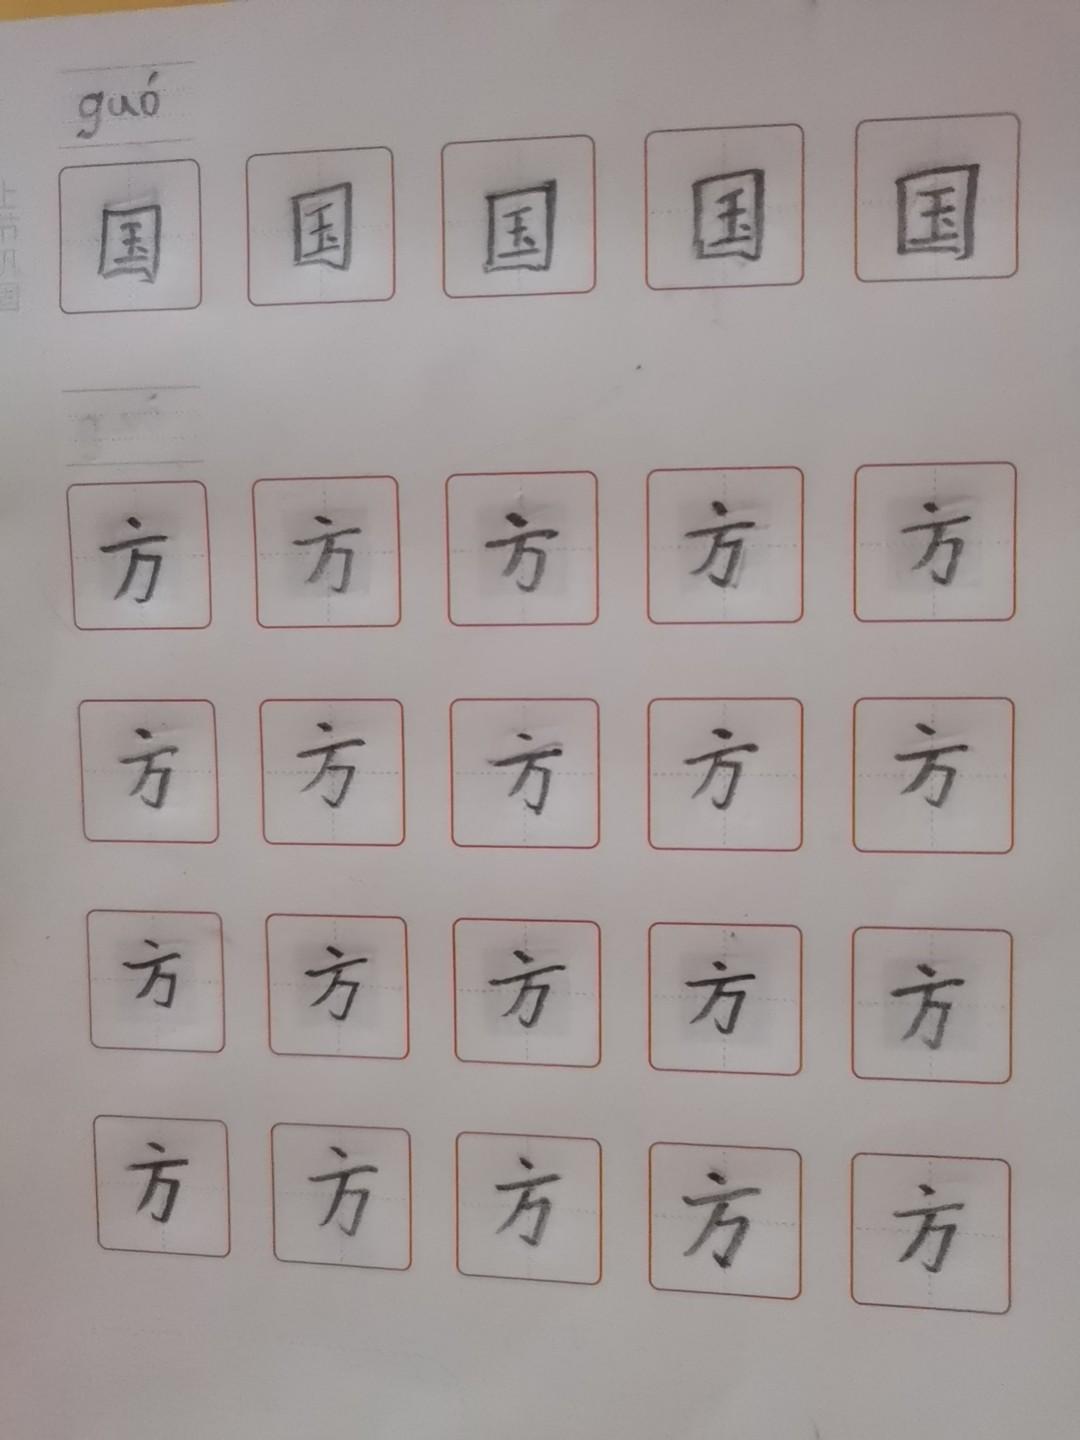 guó
国 国 国 国 国
方 方 方 方 方
方 方 方 方 方
方 方 方 方 方
方 方 方 方 方